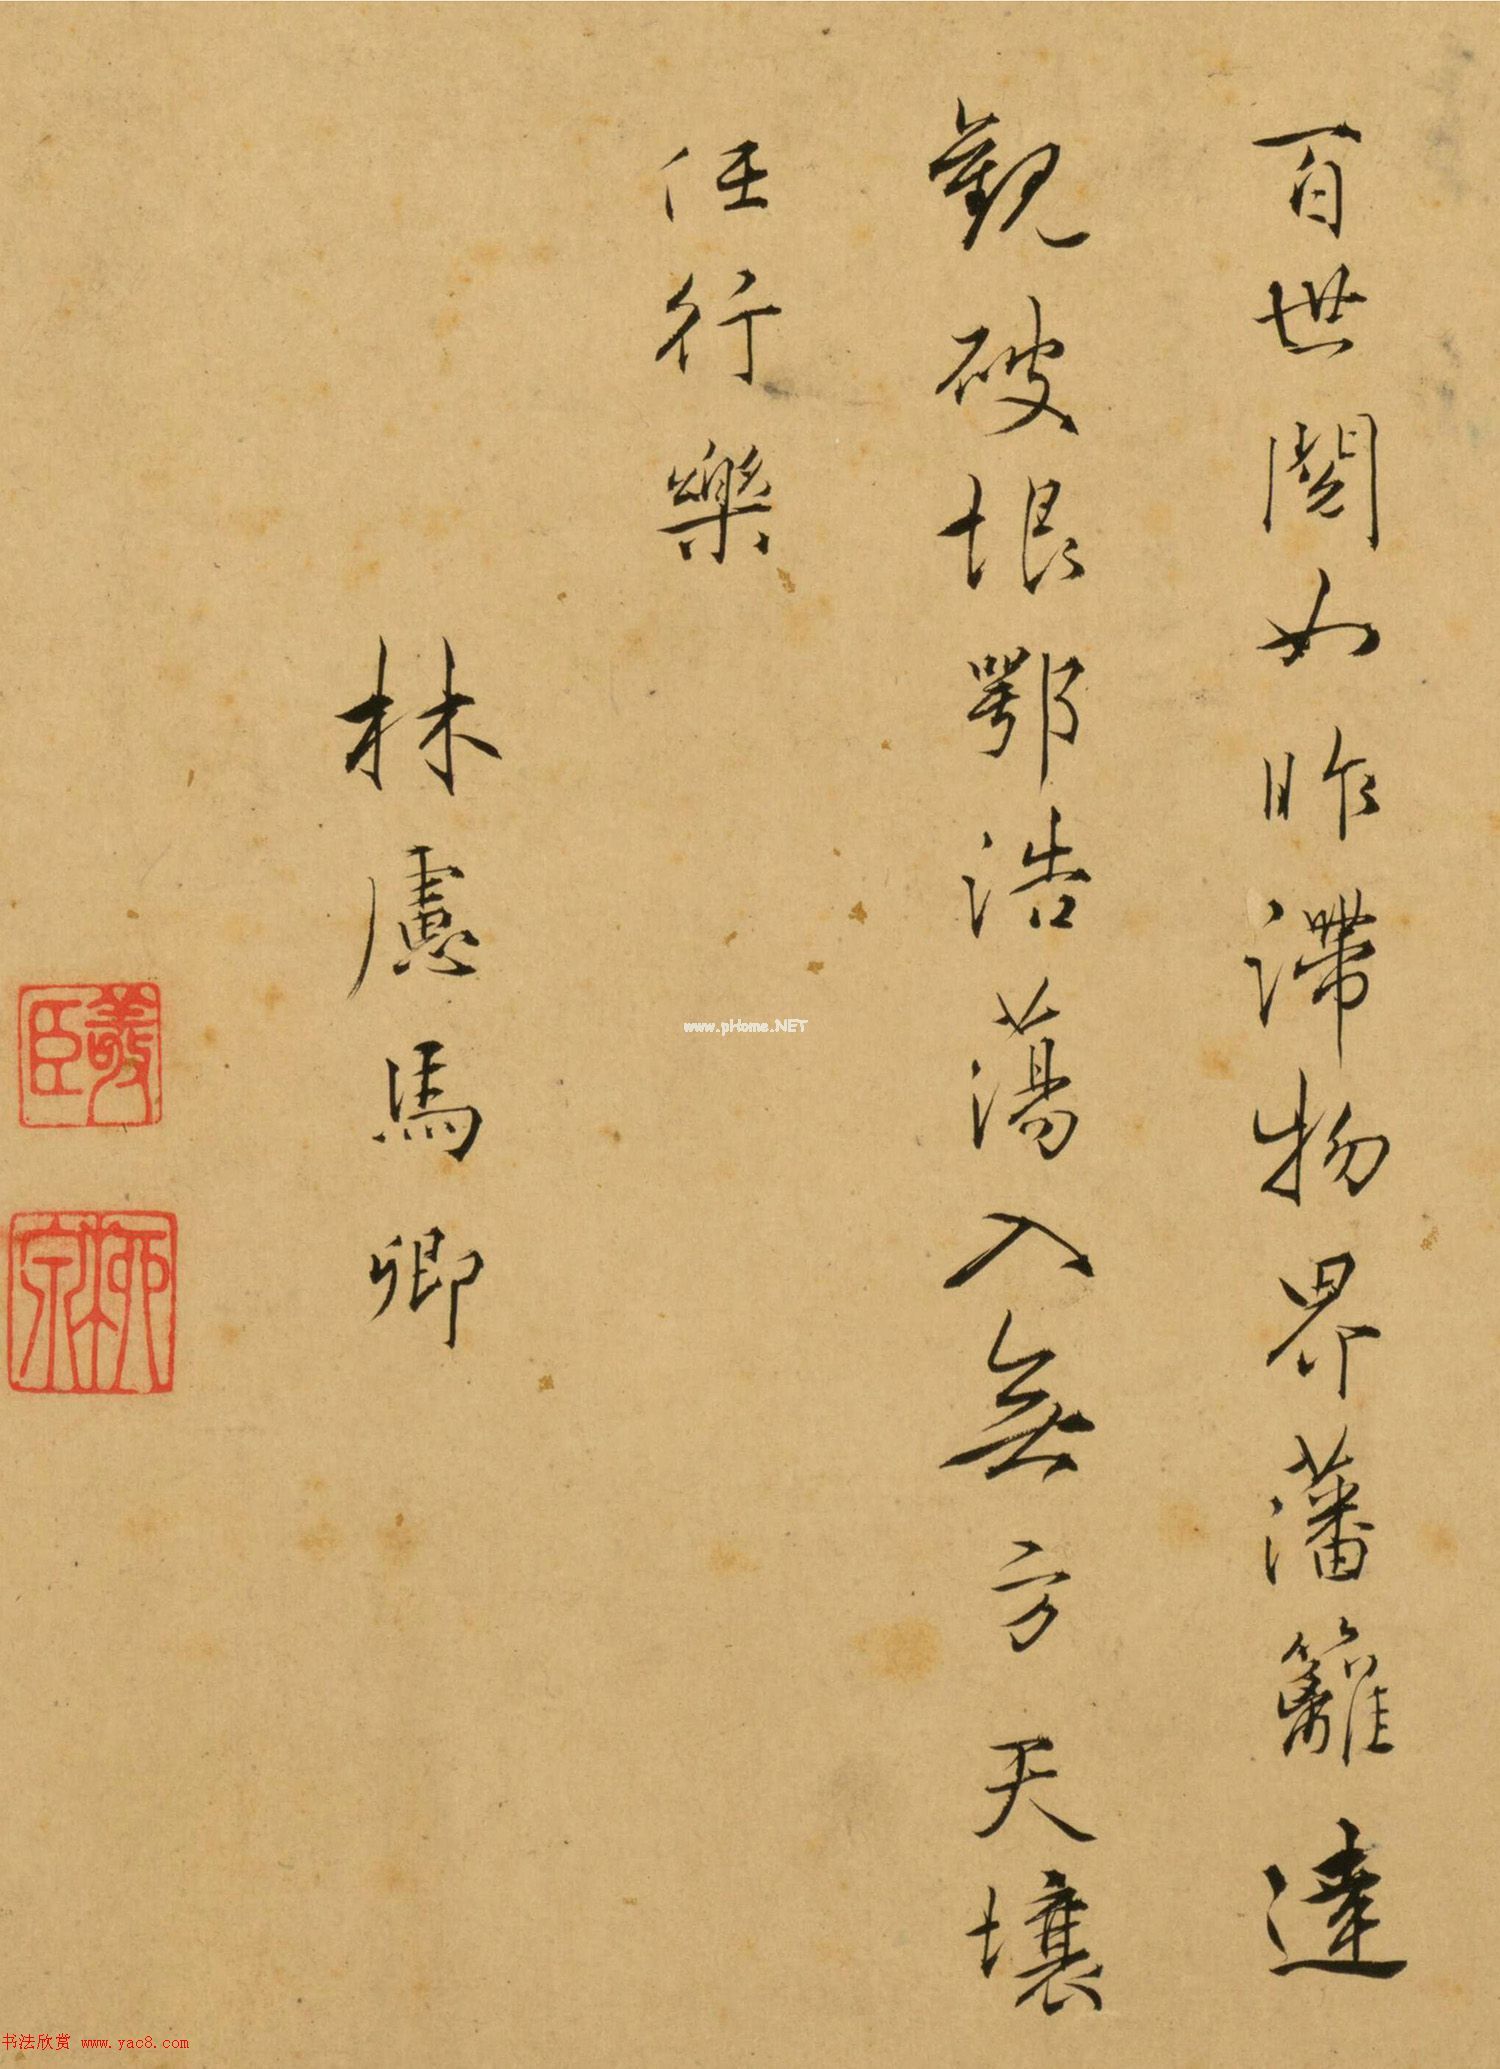 百世閱如昨滯物界藩籬達
觀破垠鄂浩蕩入無方天壤
任行樂
林慮馬卿
敬臣
柳宗
www.pHome.NET
书法欣赏 www.yac8.com